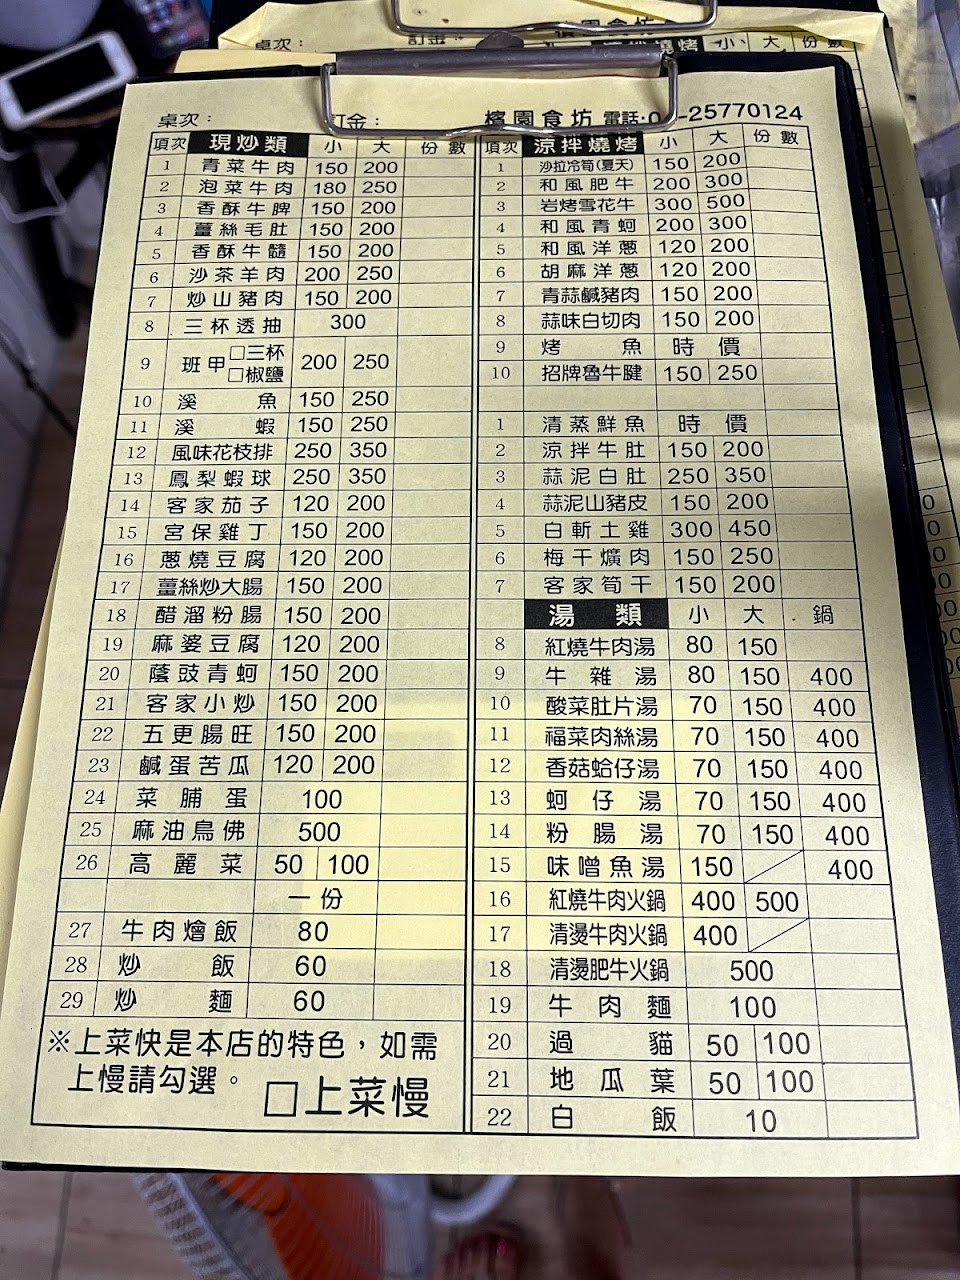 桌次:
訂金:
檳園食坊 電話:0 -25770124
項次 現炒類 小 大 份數
1 青菜牛肉 150 200
2 泡菜牛肉 180 250
3 香酥牛脾 150 200
4 薑絲毛肚 150 200
5 香酥牛髓 150 200
6 沙茶羊肉 200 250
7 炒山豬肉 150 200
8 三杯透抽 300
9 班甲 □三杯 □椒鹽 200 250
10 溪魚 150 250
11 溪蝦 150 250
12 風味花枝排 250 350
13 鳳梨蝦球 250 350
14 客家茄子 120 200
15 宮保雞丁 150 200
16 蔥燒豆腐 120 200
17 薑絲炒大腸 150 200
18 醋溜粉腸 150 200
19 麻婆豆腐 120 200
20 蔭豉青蚵 150 200
21 客家小炒 150 200
22 五更腸旺 150 200
23 鹹蛋苦瓜 120 200
24 菜脯蛋 100
25 麻油鳥佛 500
26 高麗菜 50 100
一份
27 牛肉燴飯 80
28 炒飯 60
29 炒麵 60
※上菜快是本店的特色,如需
上慢請勾選。 □上菜慢
項次 涼拌燒烤 小 大 份數
1 沙拉冷筍(夏天) 150 200
2 和風肥牛 200 300
3 岩烤雪花牛 300 500
4 和風青蚵 200 300
5 和風洋蔥 120 200
6 胡麻洋蔥 120 200
7 青蒜鹹豬肉 150 200
8 蒜味白切肉 150 200
9 烤魚 時價
10 招牌魯牛腱 150 250
1 清蒸鮮魚 時價
2 涼拌牛肚 150 200
3 蒜泥白肚 250 350
4 蒜泥山豬皮 150 200
5 白斬土雞 300 450
6 梅干爌肉 150 250
7 客家筍干 150 200
湯類 小 大 . 鍋
8 紅燒牛肉湯 80 150
9 牛雜湯 80 150 400
10 酸菜肚片湯 70 150 400
11 福菜肉絲湯 70 150 400
12 香菇蛤仔湯 70 150 400
13 蚵仔湯 70 150 400
14 粉腸湯 70 150 400
15 味噌魚湯 150 400
16 紅燒牛肉火鍋 400 500
17 清燙牛肉火鍋 400
18 清燙肥牛火鍋 500
19 牛肉麵 100
20 過貓 50 100
21 地瓜葉 50 100
22 白飯 10